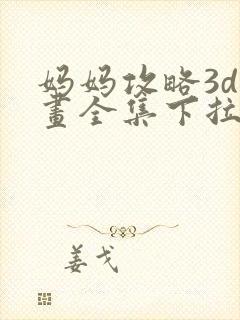 妈妈攻略3d
畫全集下拉
姜戈